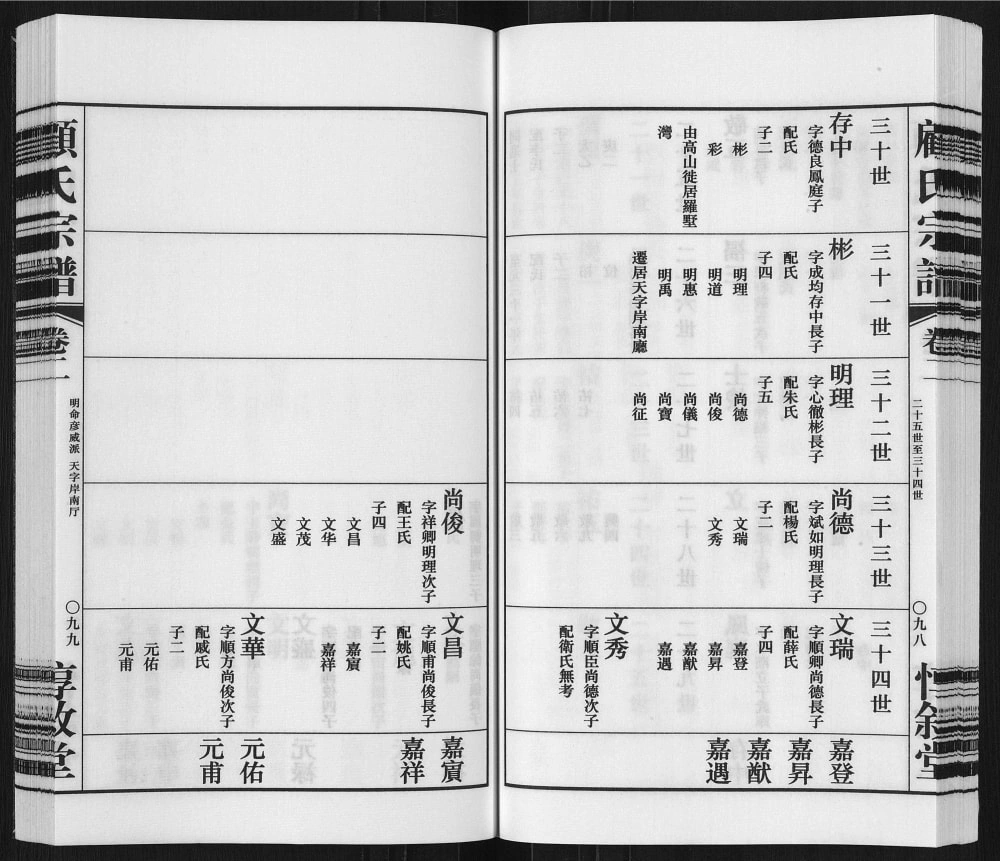 顧氏宗譜
卷二
二十五世至三十四世
〇九八
惇敘堂
三十世
存中
字德良鳳庭子
配氏
子二
彬
彩
由高山徙居羅墅
灣
三十一世
彬
字成均存中長子
配氏
子四
明理
明道
明惠
明禹
遷居天字岸南廳
三十二世
明理
字心徹彬長子
配朱氏
子五
尚德
尚俊
尚儀
尚寶
尚征
三十三世
尚德
字斌如明理長子
配楊氏
子二
文瑞
文秀
三十四世
文瑞
字順卿尚德長子
配薛氏
子四
嘉登
嘉昇
嘉猷
嘉遇
文秀
字順臣尚德次子
配衛氏無考
嘉登
嘉昇
嘉猷
嘉遇
尚俊
字祥卿明理次子
配王氏
子四
文昌
文华
文茂
文盛
文昌
字順甫尚俊長子
配姚氏
子二
嘉賔
嘉祥
文華
字順方尚俊次子
配戚氏
子二
元佑
元甫
嘉賔
嘉祥
元佑
元甫
顧氏宗譜
卷二
明命彦威派 天字岸南厅
〇九九
惇敘堂